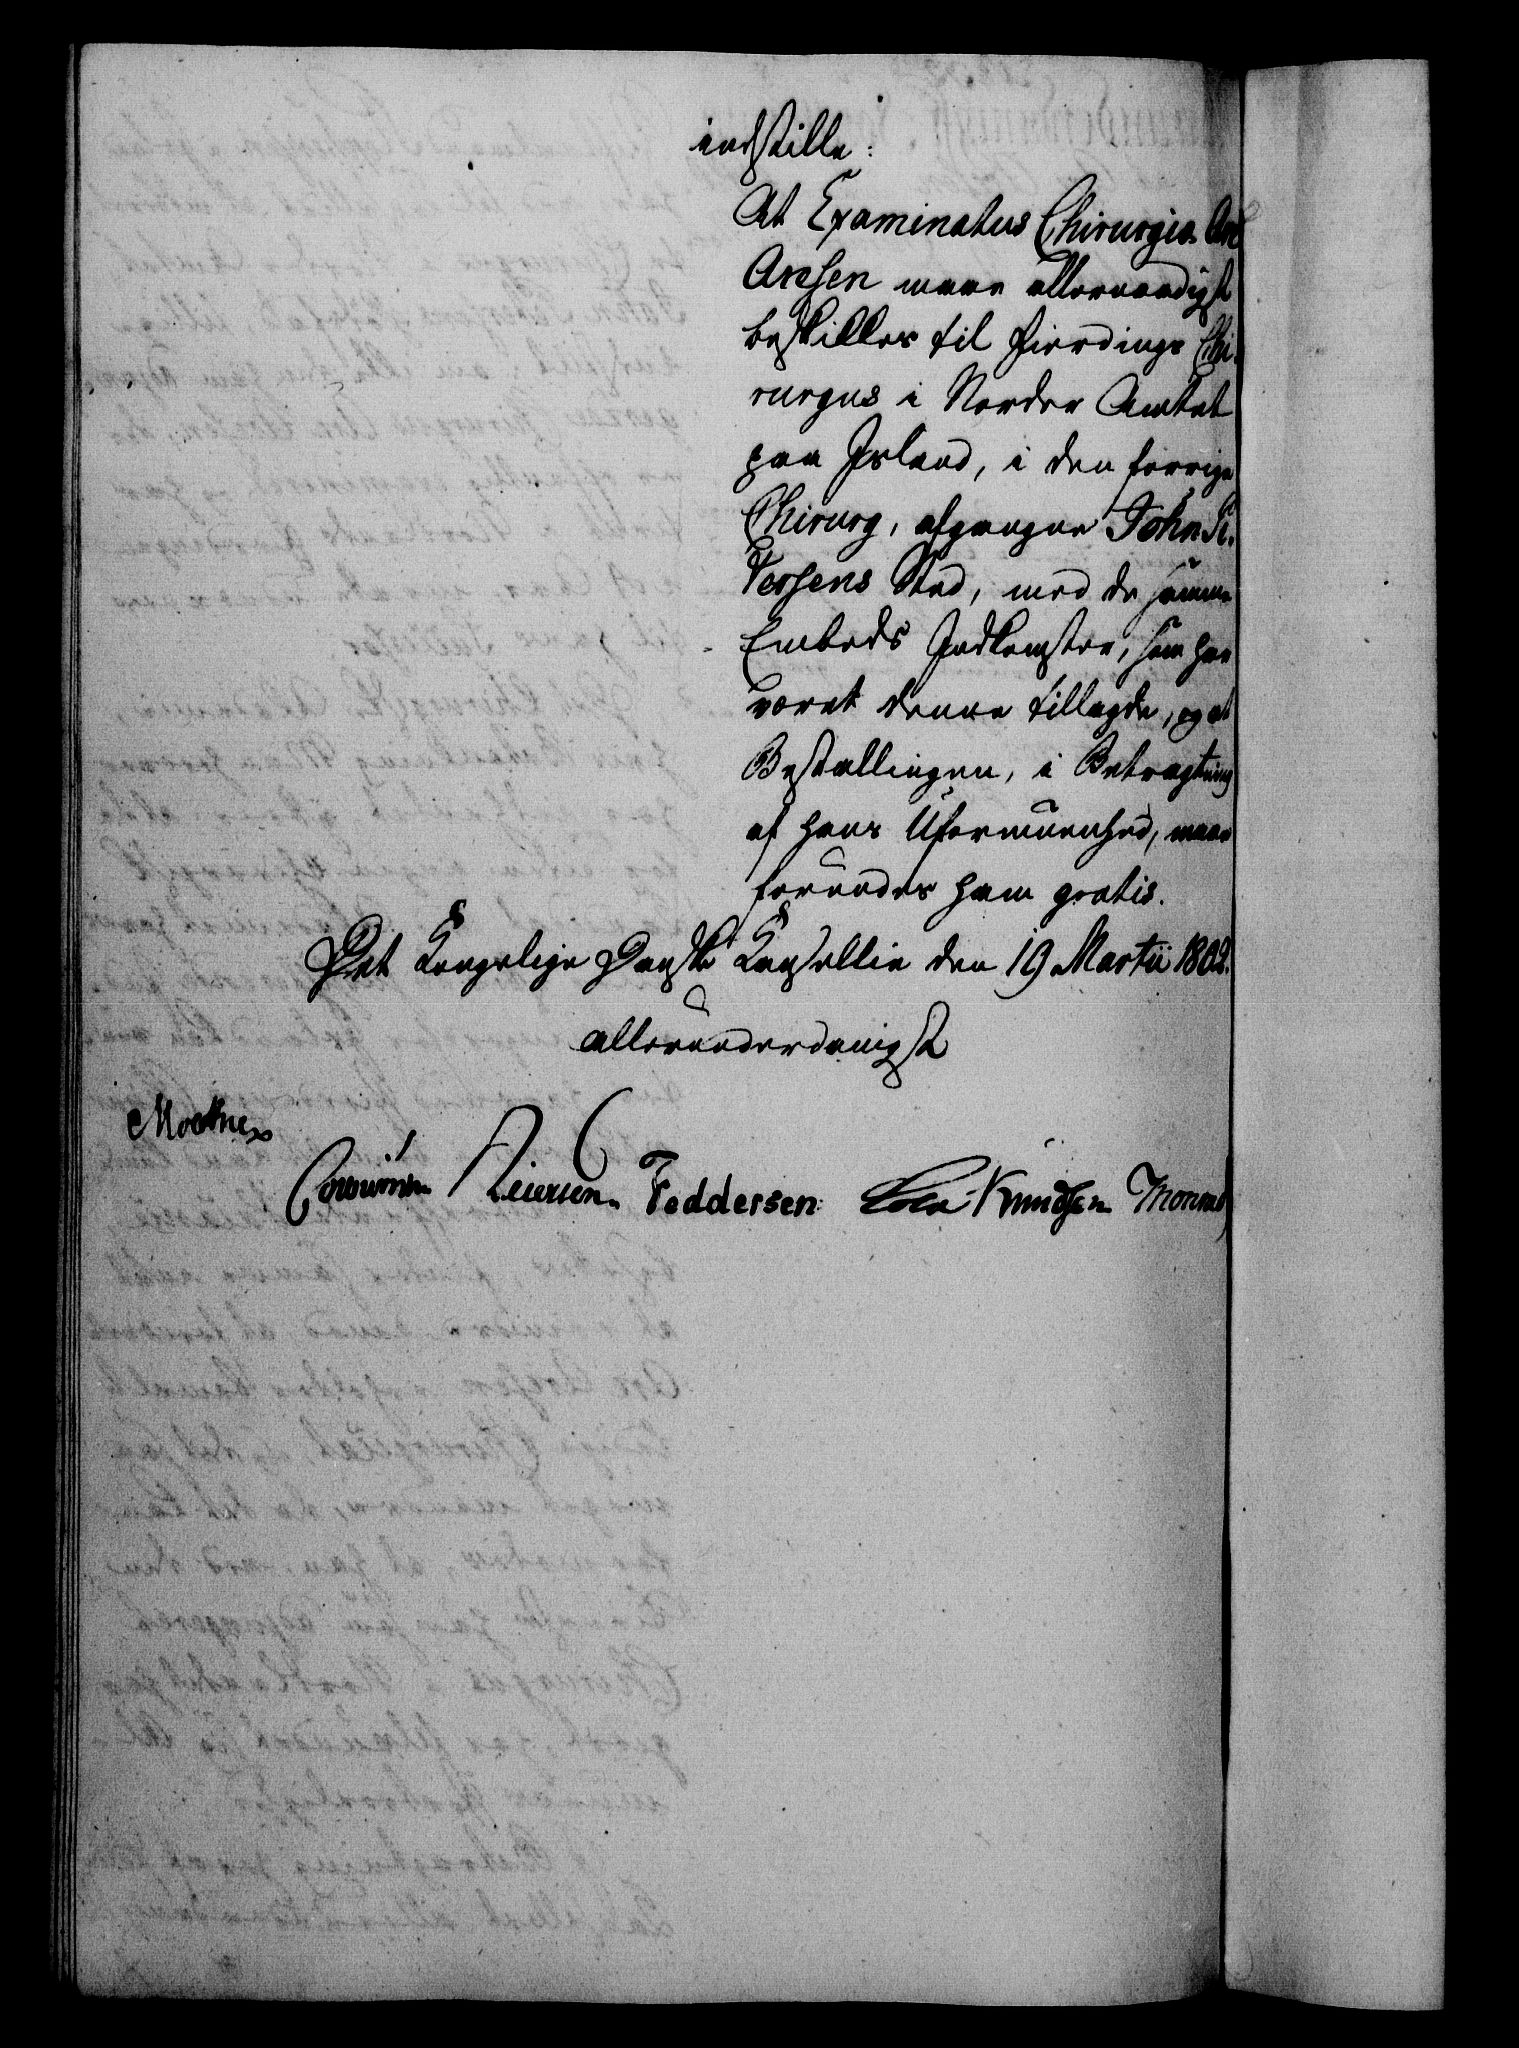 indstille:
At Examinatus Chirurgiæ Are
Aresen maae allernaadigst
beskikkes til Fierdings Chi-
rurgus i Norder Amtet
paa Island, i den forrige
Chirurg, afgangne John Pe-
tersens Sted, med de samme
Embeds Indkomster, som har
været denne tillagde, og at
Bestallingen, i Betragtning
af hans Uformuenhed, maae
forundes ham gratis.
Det Kongelige Danske Kancellie den 19 Martii 1802.
allerunderdanigst
Moesting
Cold Feddersen Knudsen Monrad